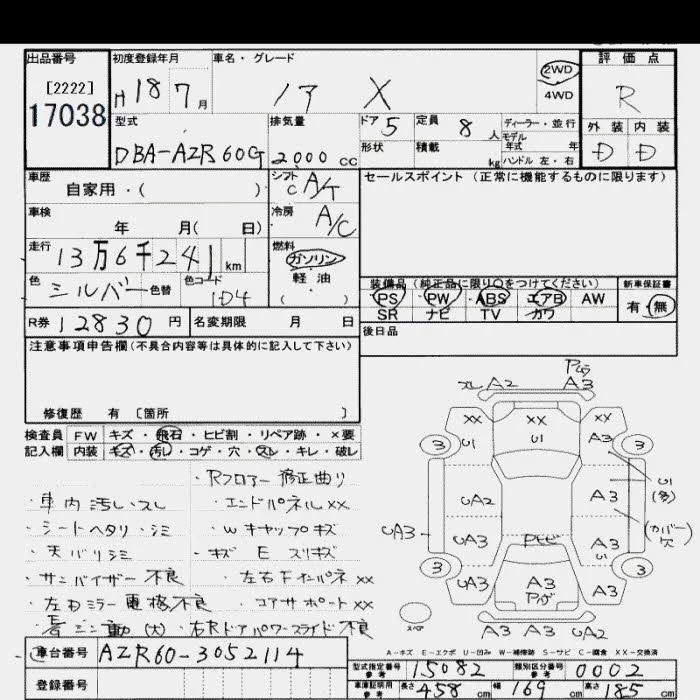 出品番号 初度登録年月 車名・グレード 評価点
[2222] 17038 H 18 7月 ノア X 2WD 4WD R
型式 排気量 ドア 5 定員 8人 ディーラー・並行 外装 内装
モデル
DBA-AZR60G 2,000 CC 形状 積載 kg 年式 年 D D
ハンドル 左・右
車歴 シフト C A/T セールスポイント (正常に機能するものに限ります)
自家用・( )
車検 冷房 A/C
年 月( 日)
走行 燃料
13万6千241 km ガソリン
軽・油
色 シルバー 色替 色コード 1D4 ( ) 装備品 (純正品に限り○をつけてください) 新車保証書
PS PW ABS エアB AW 有・無
SR ナビ TV カワ
R券 12830 円 名変期限 月 日 後日品
注意事項申告欄 (不具合内容等は具体的に記入して下さい)
修復歴 有 [箇所 ]
検査員 FW キズ・飛石・ヒビ割・リペア跡・×要
記入欄 内装 キズ・汚レ・コゲ・穴・スレ・キレ・破レ
・Rフロアー修正曲り
・車内汚し・スレ ・エンドパネルXX
・シートヘタリ・シミ ・Wキャップキズ
・天バリシミ ・キズ E スリキズ
・サンバイザー不良 ・左右FインパネXX
・左右ミラー電格不良 ・コアサポートXX
動(大) ・右Rドアパワースライド不良
スレ A2 A3
XX XX XX
3 U1 U1 A3 3
UA2 A3 U1 (多)
UA3 UA3 A3 U1 (カバー欠)
3 UA3 A3 A3 3
A3 A3 UA2
A-キズ E-エクボ U-凹み W-補修跡 S-サビ C-腐食 XX-交換済
車台番号 AZR60-3052114
登録番号
型式指定番号 参考 15082 類別区分番号 参考 0002
車庫証明用 参考 長さ 458 cm 幅 169 cm 高さ 185 cm